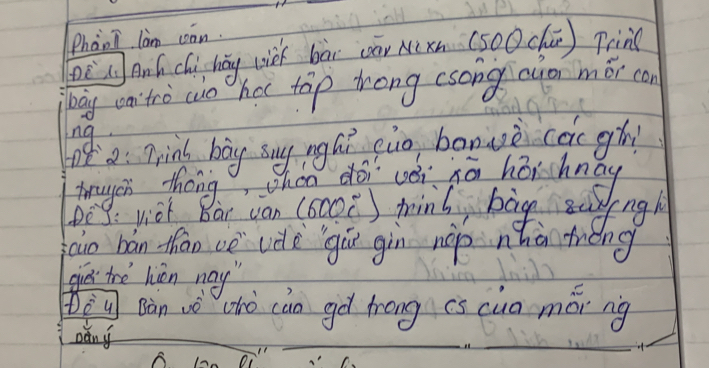 Phần II làm văn.
Đề 1: Anh chị hãy viết bài văn NLXH (500 chữ) Trình
bày vai trò của học tập trong csống của mỗi con
ng.
Đề 2: Trình bày suy nghĩ của bạn về các gtrị
truyền thống, vhóa đối với xã hội hnay
Đề 3: viết bài văn (600c) trình bày suy ngh
của bản thân về vđề "giữ gìn nếp nhà trong
giới trẻ hiện nay"
Đề 4 Bàn về vtrò của gđ trong cs của mỗi ng
Dàn ý